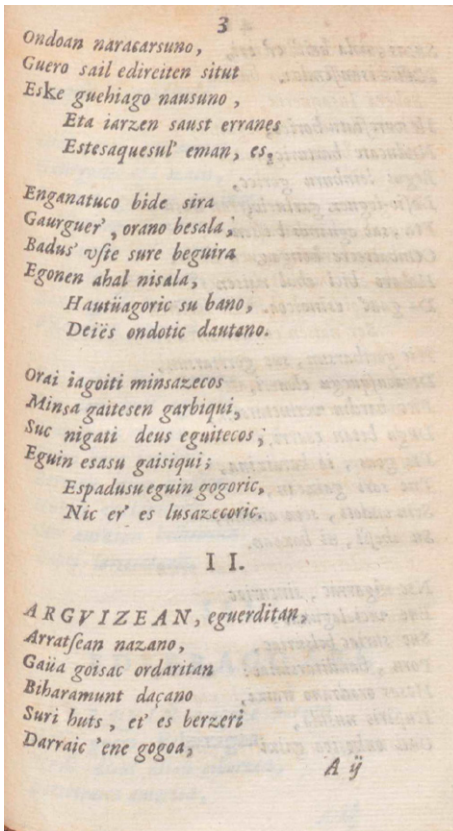 3
Ondoan naracarsuno,
Guero sail edireiten situt
Eske guehiago nausuno,
Eta iarzen saust erranes
Estesaquesul' eman, es,
Enganatuco bide sira
Gaurguer', orano besala;
Badus' vste sure beguira
Egonen ahal nisala,
Hautüagoric su bano,
Deiës ondotic dautano.
Orai iagoiti minsazecos
Minsa gaitesen garbiqui,
Suc nigati deus eguitecos;
Eguin esasu gaisiqui;
Espadusu eguin gogoric,
Nic er' es lusazecoric.
II.
ARGVIZEAN, eguerditan,
Arratsean nazano,
Gaüa goisac ordaritan
Biharamunt daçano
Suri huts, et' es berzeri
Darraic 'ene gogoa,
A ij